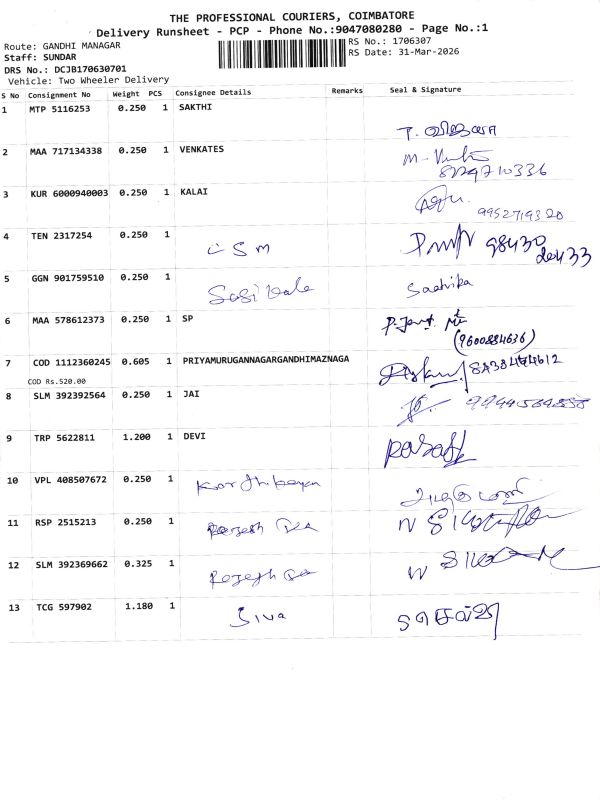 THE PROFESSIONAL COURIERS, COIMBATORE
Delivery Runsheet - PCP - Phone No.:9047080280 - Page No.:1
Route: GANDHI MANAGAR
RS No.: 1706307
Staff: SUNDAR
RS Date: 31-Mar-2026
DRS No.: DCJB170630701
Vehicle: Two Wheeler Delivery
S No Consignment No Weight PCS Consignee Details Remarks Seal & Signature
1 MTP 5116253 0.250 1 SAKTHI
2 MAA 717134338 0.250 1 VENKATES
3 KUR 6000940003 0.250 1 KALAI
9952719320
4 TEN 2317254 0.250 1
98430
5 GGN 901759510 0.250 1 Sasikala Sadhika
6 MAA 578612373 0.250 1 SP
(9600884636)
7 COD 1112360245 0.605 1 PRIYAMURUGANNAGARGANDHIMAZNAGA
COD Rs.520.00
8 SLM 392392564 0.250 1 JAI
9 TRP 5622811 1.200 1 DEVI
10 VPL 408507672 0.250 1 Karthikeyan
11 RSP 2515213 0.250 1 Rajesh
12 SLM 392369662 0.325 1 Rajesh
13 TCG 597902 1.180 1 Siva